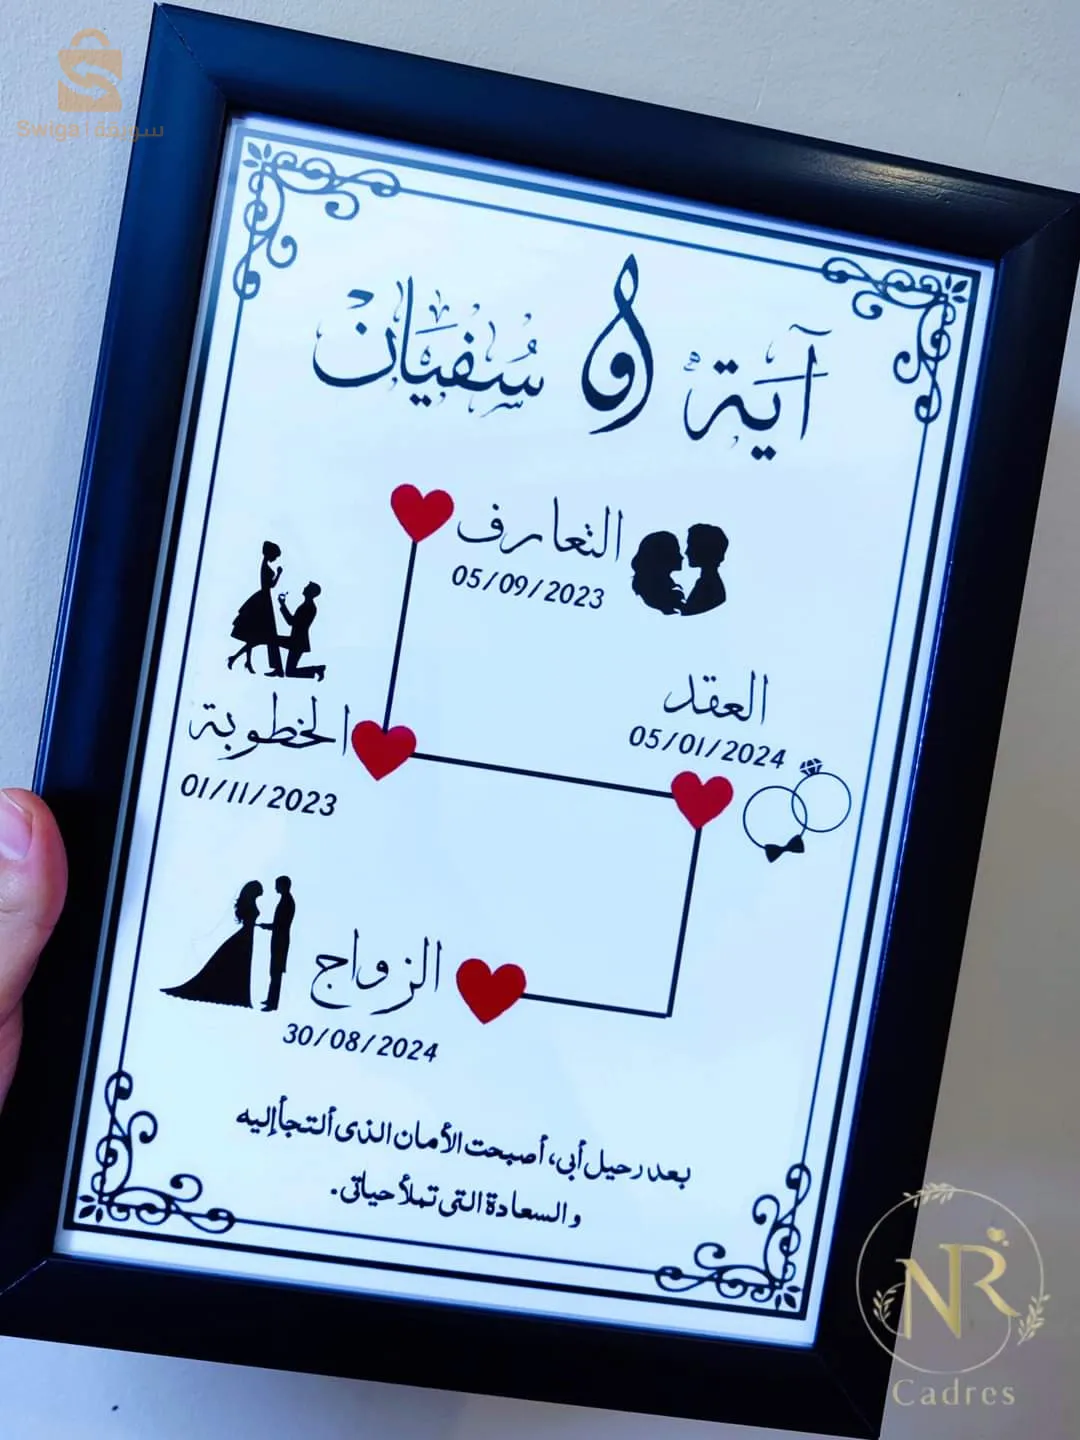 Swiga سويقة
آية و سفيان
التعارف
05/09/2023
العقد
05/01/2024
الخطوبة
01/11/2023
الزواج
30/08/2024
بعد رحيل أبي، أصبحت الأمان الذى ألتجأ إليه
والسعادة التى تملأ حياتى.
NR
Cadres